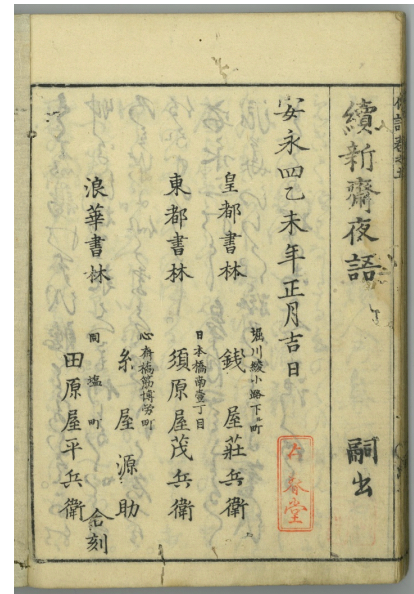 續新齋夜語 嗣出
安永四乙未年正月吉日
皇都書林
堀川綾小路下ル町
銭屋莊兵衛
東都書林
日本橋南壹丁目
須原屋茂兵衛
浪華書林
心斎橋筋博労町
糸屋源助
同塩町
田原屋平兵衛
合刻
春堂